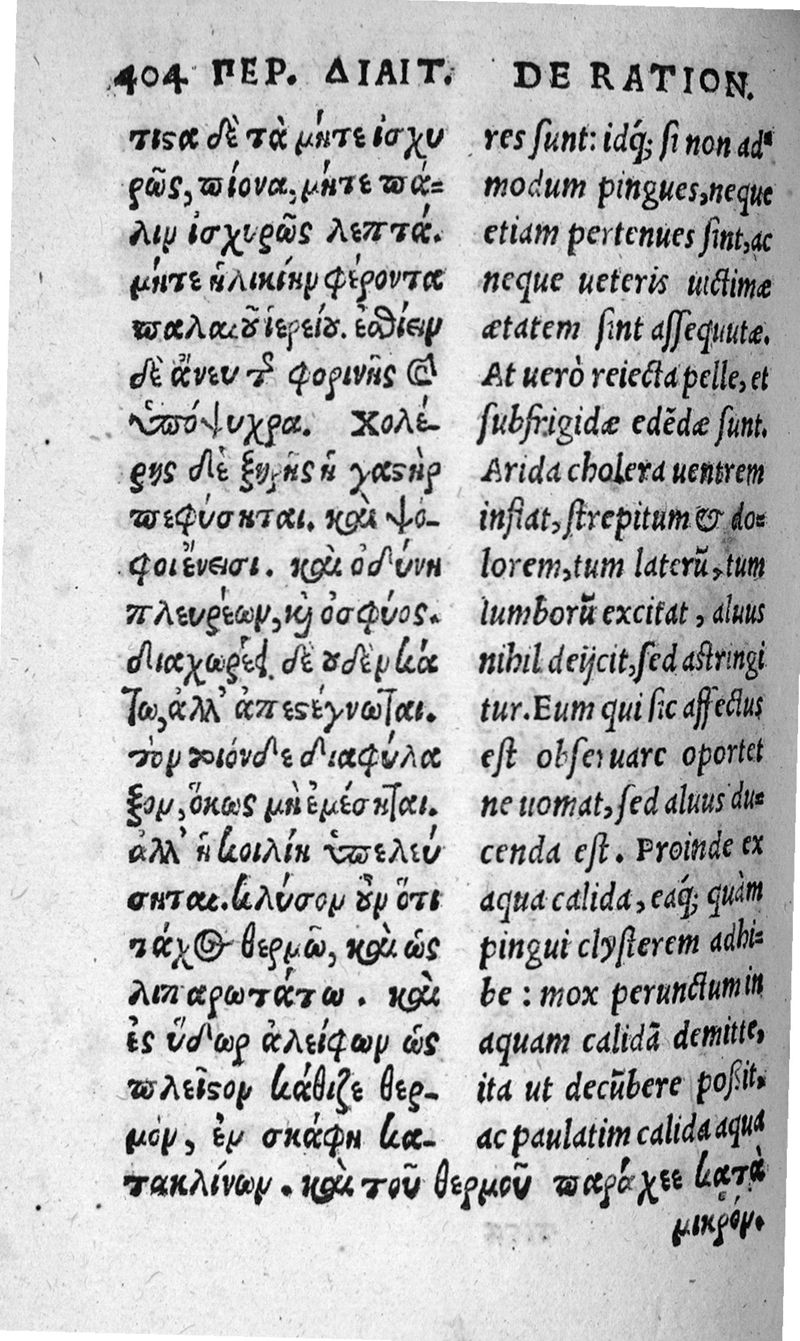 404 ΠΕΡ. ΔΙΑΙΤ. DE RATION.
τιϛα δὲ τὰ μήτε ἰσχυ
ρῶς, πίονα, μήτε πά=
λιν ἰσχυρῶς λεπτά.
μήτε ἡλικίην φέροντα
παλαιοῦ ἱερείου. ἐσθίειν
δὲ ἄνευ τῆς φορινῆς καὶ
ὑπόψυχρα. Χολέ-
ρης δὲ ξηρῆς ἡ γαϛὴρ
πεφύσηται. καὶ ψό-
φοι ἔνεισι. καὶ ὀδύνη
πλευρέων, καὶ ὀσφύος.
διαχωρέει δὲ οὐδὲν κά
τω, ἀλλ' ἀπεϛέγνωται.
τὸν τοιόνδε διαφύλα
ξον, ὅκως μὴ ἐμέσηται.
ἀλλ' ἡ κοιλίη ὑπελεύ
σηται. κλύσον οὖν ὅτι
τάχος θερμῶ, καὶ ὡς
λιπαρωτάτω. καὶ
ἐς ὕδωρ ἀλείφων ὡς
πλεῖϛον κάθιζε θερ-
μὸν, ἐν σκάφη κα-
τακλίνων. καὶ τοῦ θερμοῦ παράχεε κατὰ
μικρόν.
res sunt: idq́; si non ad=
modum pingues, neque
etiam pertenues sint, ac
neque ueteris uictimæ
ætatem sint assequutæ.
At uerò reiecta pelle, et
subfrigidæ edẽdæ sunt.
Arida cholera uentrem
inflat, strepitum & do=
lorem, tum laterũ, tum
lumborũ excitat, aluus
nihil deijcit, sed astringi
tur. Eum qui sic affectus
est obseruare oportet
ne uomat, sed aluus du=
cenda est. Proinde ex
aqua calida, eaq́; quàm
pingui clysterem adhi=
be: mox perunctum in
aquam calidã demitte,
ita ut decũbere possit,
ac paulatim calida aqua